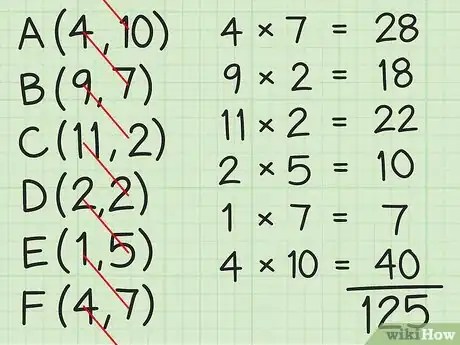 A(4,10) 4 × 7 = 28
B(9,7) 9 × 2 = 18
C(11,2) 11 × 2 = 22
D(2,2) 2 × 5 = 10
E(1,5) 1 × 7 = 7
F(4,7) 4 × 10 = 40
125
wikiHow